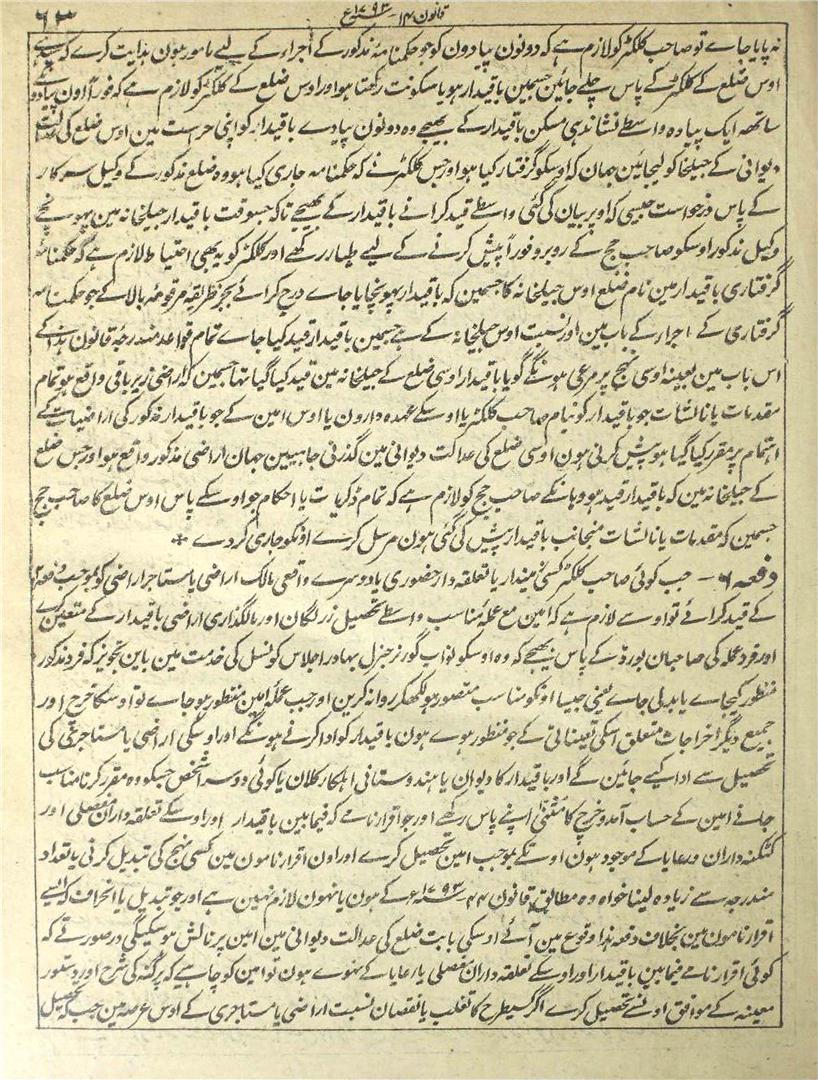 قانون ۱۴ سنہ ۱۷۹۳ع
۶۳
نہ پایا جاے تو صاحب کلکٹر کو لازم ہے کہ دونون پیادون کو جو حکمنامۂ مذکور کے اجراء کے لیے مامور ہون ہدایت کرے کہ
اوس ضلع کے کلکٹر کے پاس چلے جائین جسمین باقیدار ہو یا سکونت رکھتا ہو اور اوس ضلع کے کلکٹر کو لازم ہے کہ فوراً اون پیادون کے
ساتھہ ایک پیادہ واسطے نشاندہی مسکن باقیدار کے بھیجے وہ دونون پیادے باقیدار کو اپنی حراست مین اوس ضلع کی عدالت
دیوانی کے جیلخانہ کو لیجائین جہان کہ اوسکو گرفتار کیا ہو اور جس کلکٹر نے کہ حکمنامہ جاری کیا ہو وہ ضلع مذکور کے وکیل سرکار
کے پاس درخواست جیسی کہ اوپر بیان کی گئی واسطے قید کرانے باقیدار کے بھیجے تاکہ جسوقت باقیدار جیلخانہ مین پہونچے
وکیل مذکور اوسکو صاحب جج کے روبرو فوراً پیش کرنے کے لیے طیار رکھے اور کلکٹر کو یہ بھی احتیاط لازم ہے کہ حکمنامہ
گرفتاری باقیدار مین نام ضلع اوس جیلخانہ کا جسمین کہ باقیدار پہونچایا جاے درج کرائے بجز طریقۂ مرقومۂ بالا کے جو حکمنامہ
گرفتاری کے اجراء کے باب مین اور نسبت اوس جیلخانہ کے ہے جسمین باقیدار قید کیا جاے تمام قواعد مندرجۂ قانون ہذا کے
اس باب مین بعینہ اوسی نہج پر مرعی ہونگے گویا باقیدار اوسی ضلع کے جیلخانہ مین قید کیا گیا تھا جسمین کہ اراضی زیر باقی واقع ہو تمام
مقدمات یا نالشات جو باقیدار کو بنام صاحب کلکٹر یا اوسکے عہدہ دارون یا اوس امین کے جو باقیدار مذکور کی اراضیات کے
اہتمام پر مقرر کیا گیا ہو پیش کرنی ہون اوسی ضلع کی عدالت دیوانی مین گذرنی چاہیین جہان اراضی مذکور واقع ہو اور جس ضلع
کے جیلخانہ مین کہ باقیدار قید ہو وہانکے صاحب جج کو لازم ہے کہ تمام ڈکریات یا احکام جو اوسکے پاس اوس ضلع کا صاحب جج
جسمین کہ مقدمات یا نالشات منجانب باقیدار پیش کی گئی ہون مرسل کرے اونکو جاری کر دے *
دفعہ ۶ - جب کوئی صاحب کلکٹر کسی زمیندار یا تعلقہ دار حضوری یا دوسرے واقعی مالک اراضی یا مستاجر اراضی کو بموجب دفعہ
کے قید کرائے تو اوسے لازم ہے کہ امین مع عملۂ مناسب واسطے تحصیل زر لگان اور مالگذاری اراضی باقیدار کے متعین کرے
اور فرد عملہ کی صاحبان بورڈ کے پاس بھیجے کہ وہ اوسکو نواب گورنر جنرل بہادر اجلاس کونسل کی خدمت مین باین تجویز کہ فرد مذکور
منظور کیجاے یا بدلی جاے یعنی جیسا اونکو مناسب متصور ہو لکھکر روانہ کرین اور جب عملۂ امین منظور ہو جاے تو اوسکا خرچ اور
جمیع دیگر اخراجات متعلق اسکی تعیناتی کے جو منظور ہوے ہون باقیدار کو ادا کرنے ہونگے اور اوسکی اراضی یا مستاجری کی
تحصیل سے ادا کیے جائین گے اور باقیدار کا دیوان یا ہندوستانی اہلکار کلان یا کوئی دوسرا شخص جسکو وہ مقرر کرنا مناسب
جانے امین کے حساب آمد و خرچ کا مثنیٰ اپنے پاس رکھے اور جو اقرارنامے کہ فیمابین باقیدار اور اوسکے تعلقہ داران مفصلی اور
کٹکنہ داران و رعایا کے موجود ہون اونکے بموجب امین تحصیل کرے اور اون اقرارنامون مین کسی نہج کی تبدیل کرنی یا تعداد
مندرجہ سے زیادہ لینا خواہ وہ مطابق قانون ۴۴ سنہ ۱۷۹۳ع کے ہون یا نہون لازم نہین ہے اور جو تبدیل یا انحراف کہ ایسے
اقرارنامون مین بخلاف دفعہ ہذا وقوع مین آئے اوسکی بابت ضلع کی عدالت دیوانی مین امین پر نالش ہو سکیگی درصورتے کہ
کوئی اقرارنامے فیمابین باقیدار اور اوسکے تعلقہ داران مفصلی یا رعایا کے نہوے ہون تو امین کو چاہیے کہ پرگنہ کی شرح اور دستور
معینہ کے موافق اونسے تحصیل کرے اگر کسیطرح کا تغلب یا نقصان نسبت اراضی یا مستاجری کے اوس عرصہ مین جب کہ تحصیل